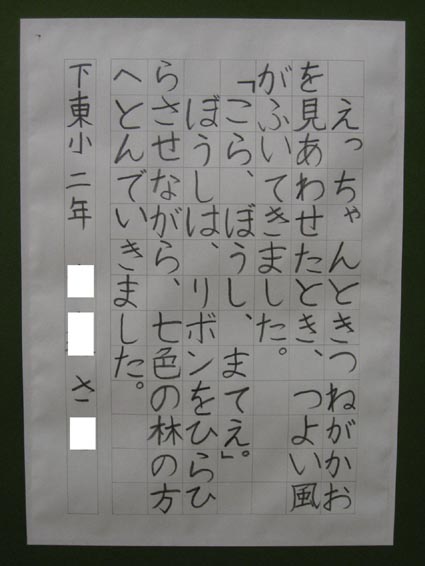 えっちゃんときつねがかお
を見あわせたとき、つよい風
がふいてきました。
「こら、ぼうし、まてえ。」
ぼうしは、リボンをひらひ
らさせながら、七色の林の方
へとんでいきました。
下東小 二年 さ